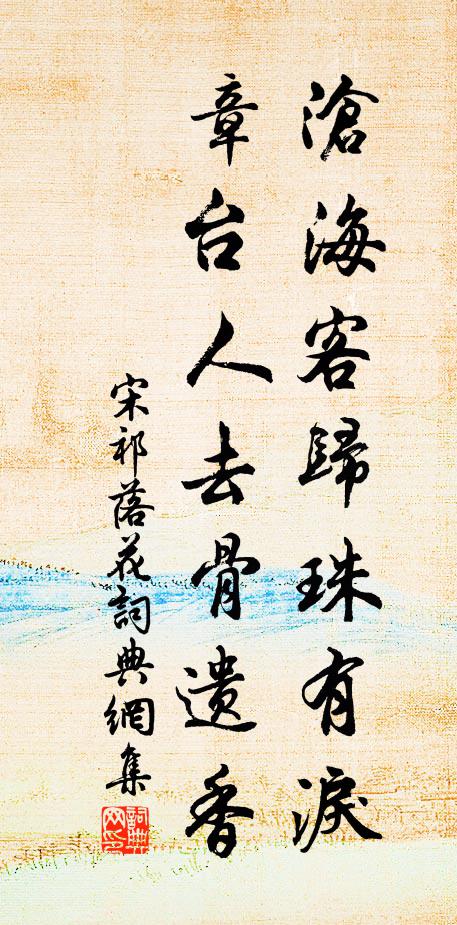 滄海客歸珠有淚
章台人去骨遺香
宋祁落花詞典網集
詞典網印